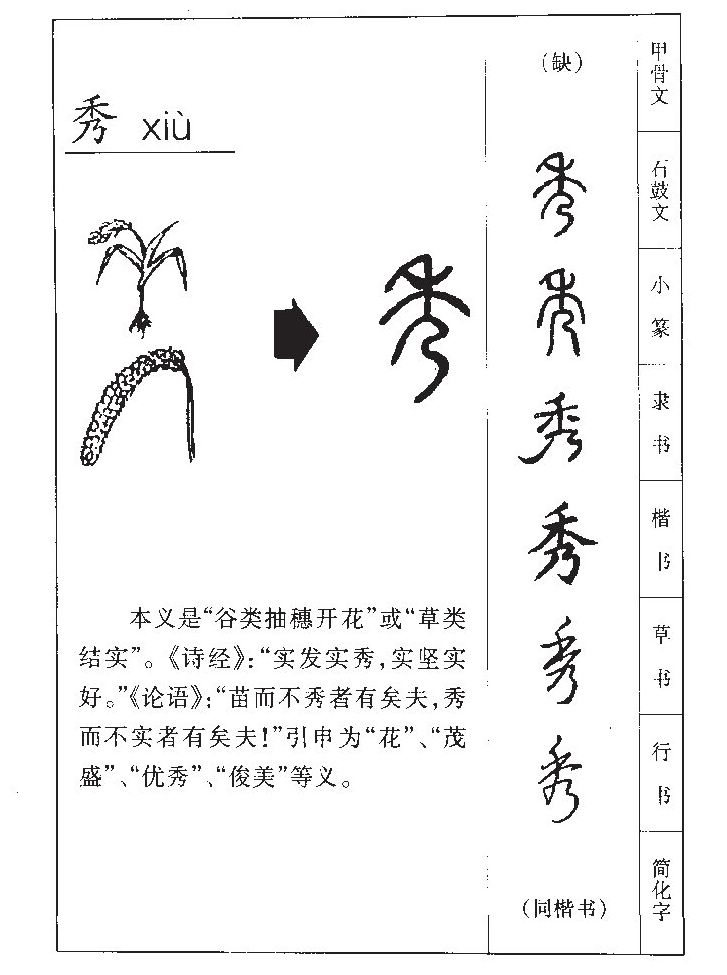 秀 xiù
本义是“谷类抽穗开花”或“草类
结实”。《诗经》:“实发实秀,实坚实
好。”《论语》:“苗而不秀者有矣夫,秀
而不实者有矣夫!”引申为“花”、“茂
盛”、“优秀”、“俊美”等义。
秀
(缺)
甲骨文
秀
石鼓文
秀
小篆
秀
隶书
秀
楷书
秀
草书
秀
行书
(同楷书)
简化字